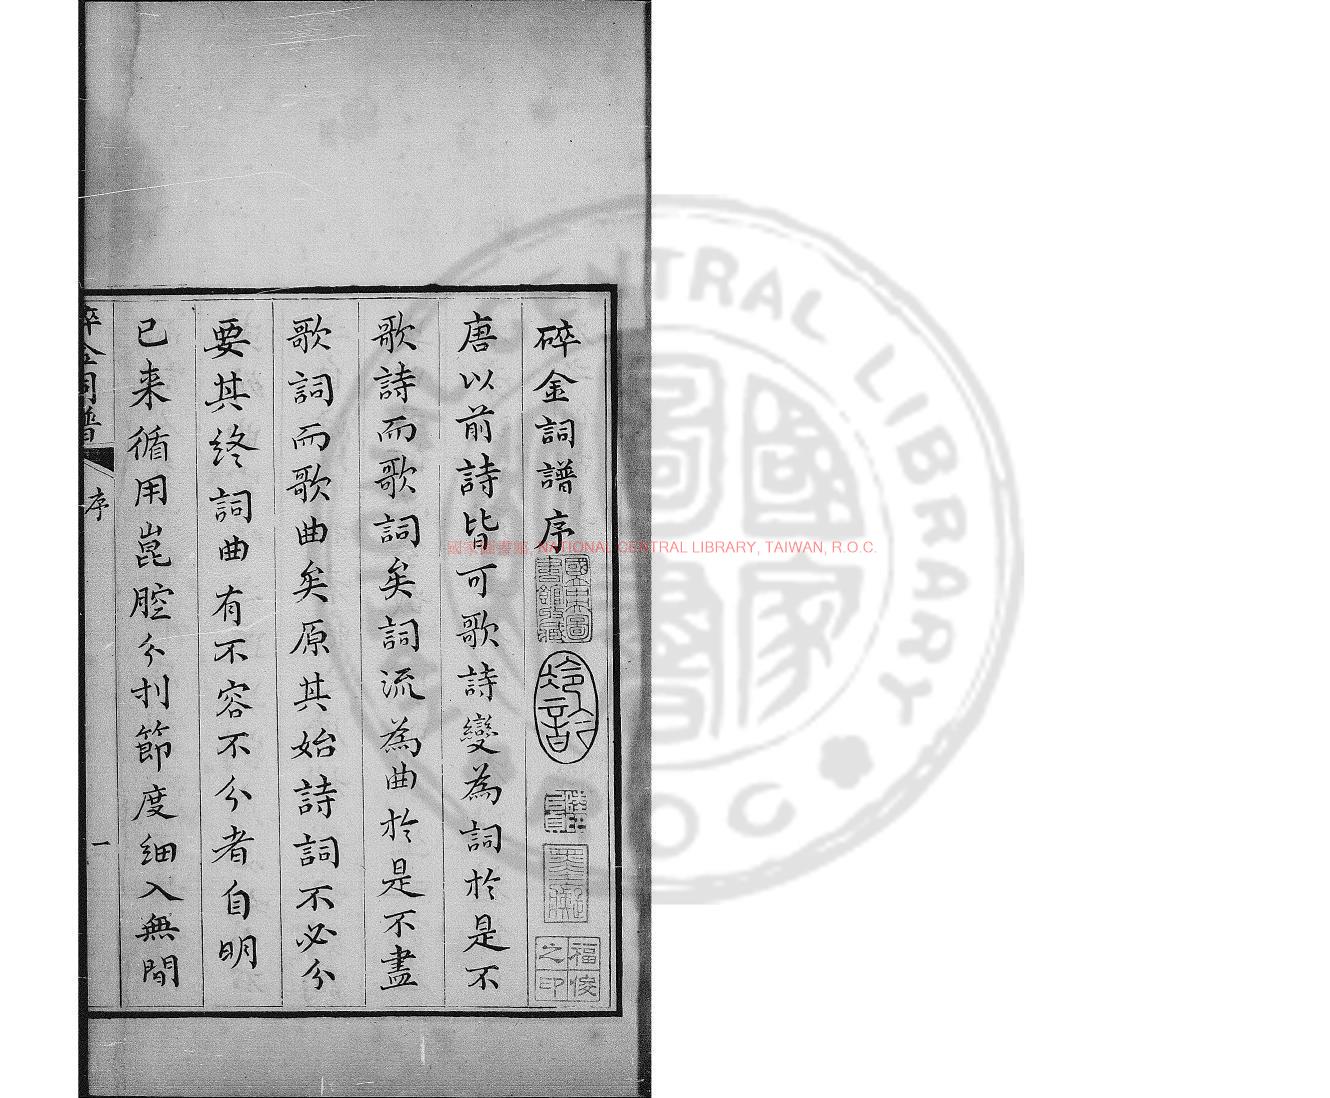 碎金詞譜序
唐以前詩皆可歌詩變為詞於是不
歌詩而歌詞矣詞流為曲於是不盡
歌詞而歌曲矣原其始詩詞不必分
要其終詞曲有不容不分者自明
已来循用崑腔分刌節度細入無間
碎金詞譜
序
一
國家圖書館, NATIONAL CENTRAL LIBRARY, TAIWAN, R.O.C.
國立中央圖書館收藏
福俊之印
CENTRAL LIBRARY
ROC
國家圖書